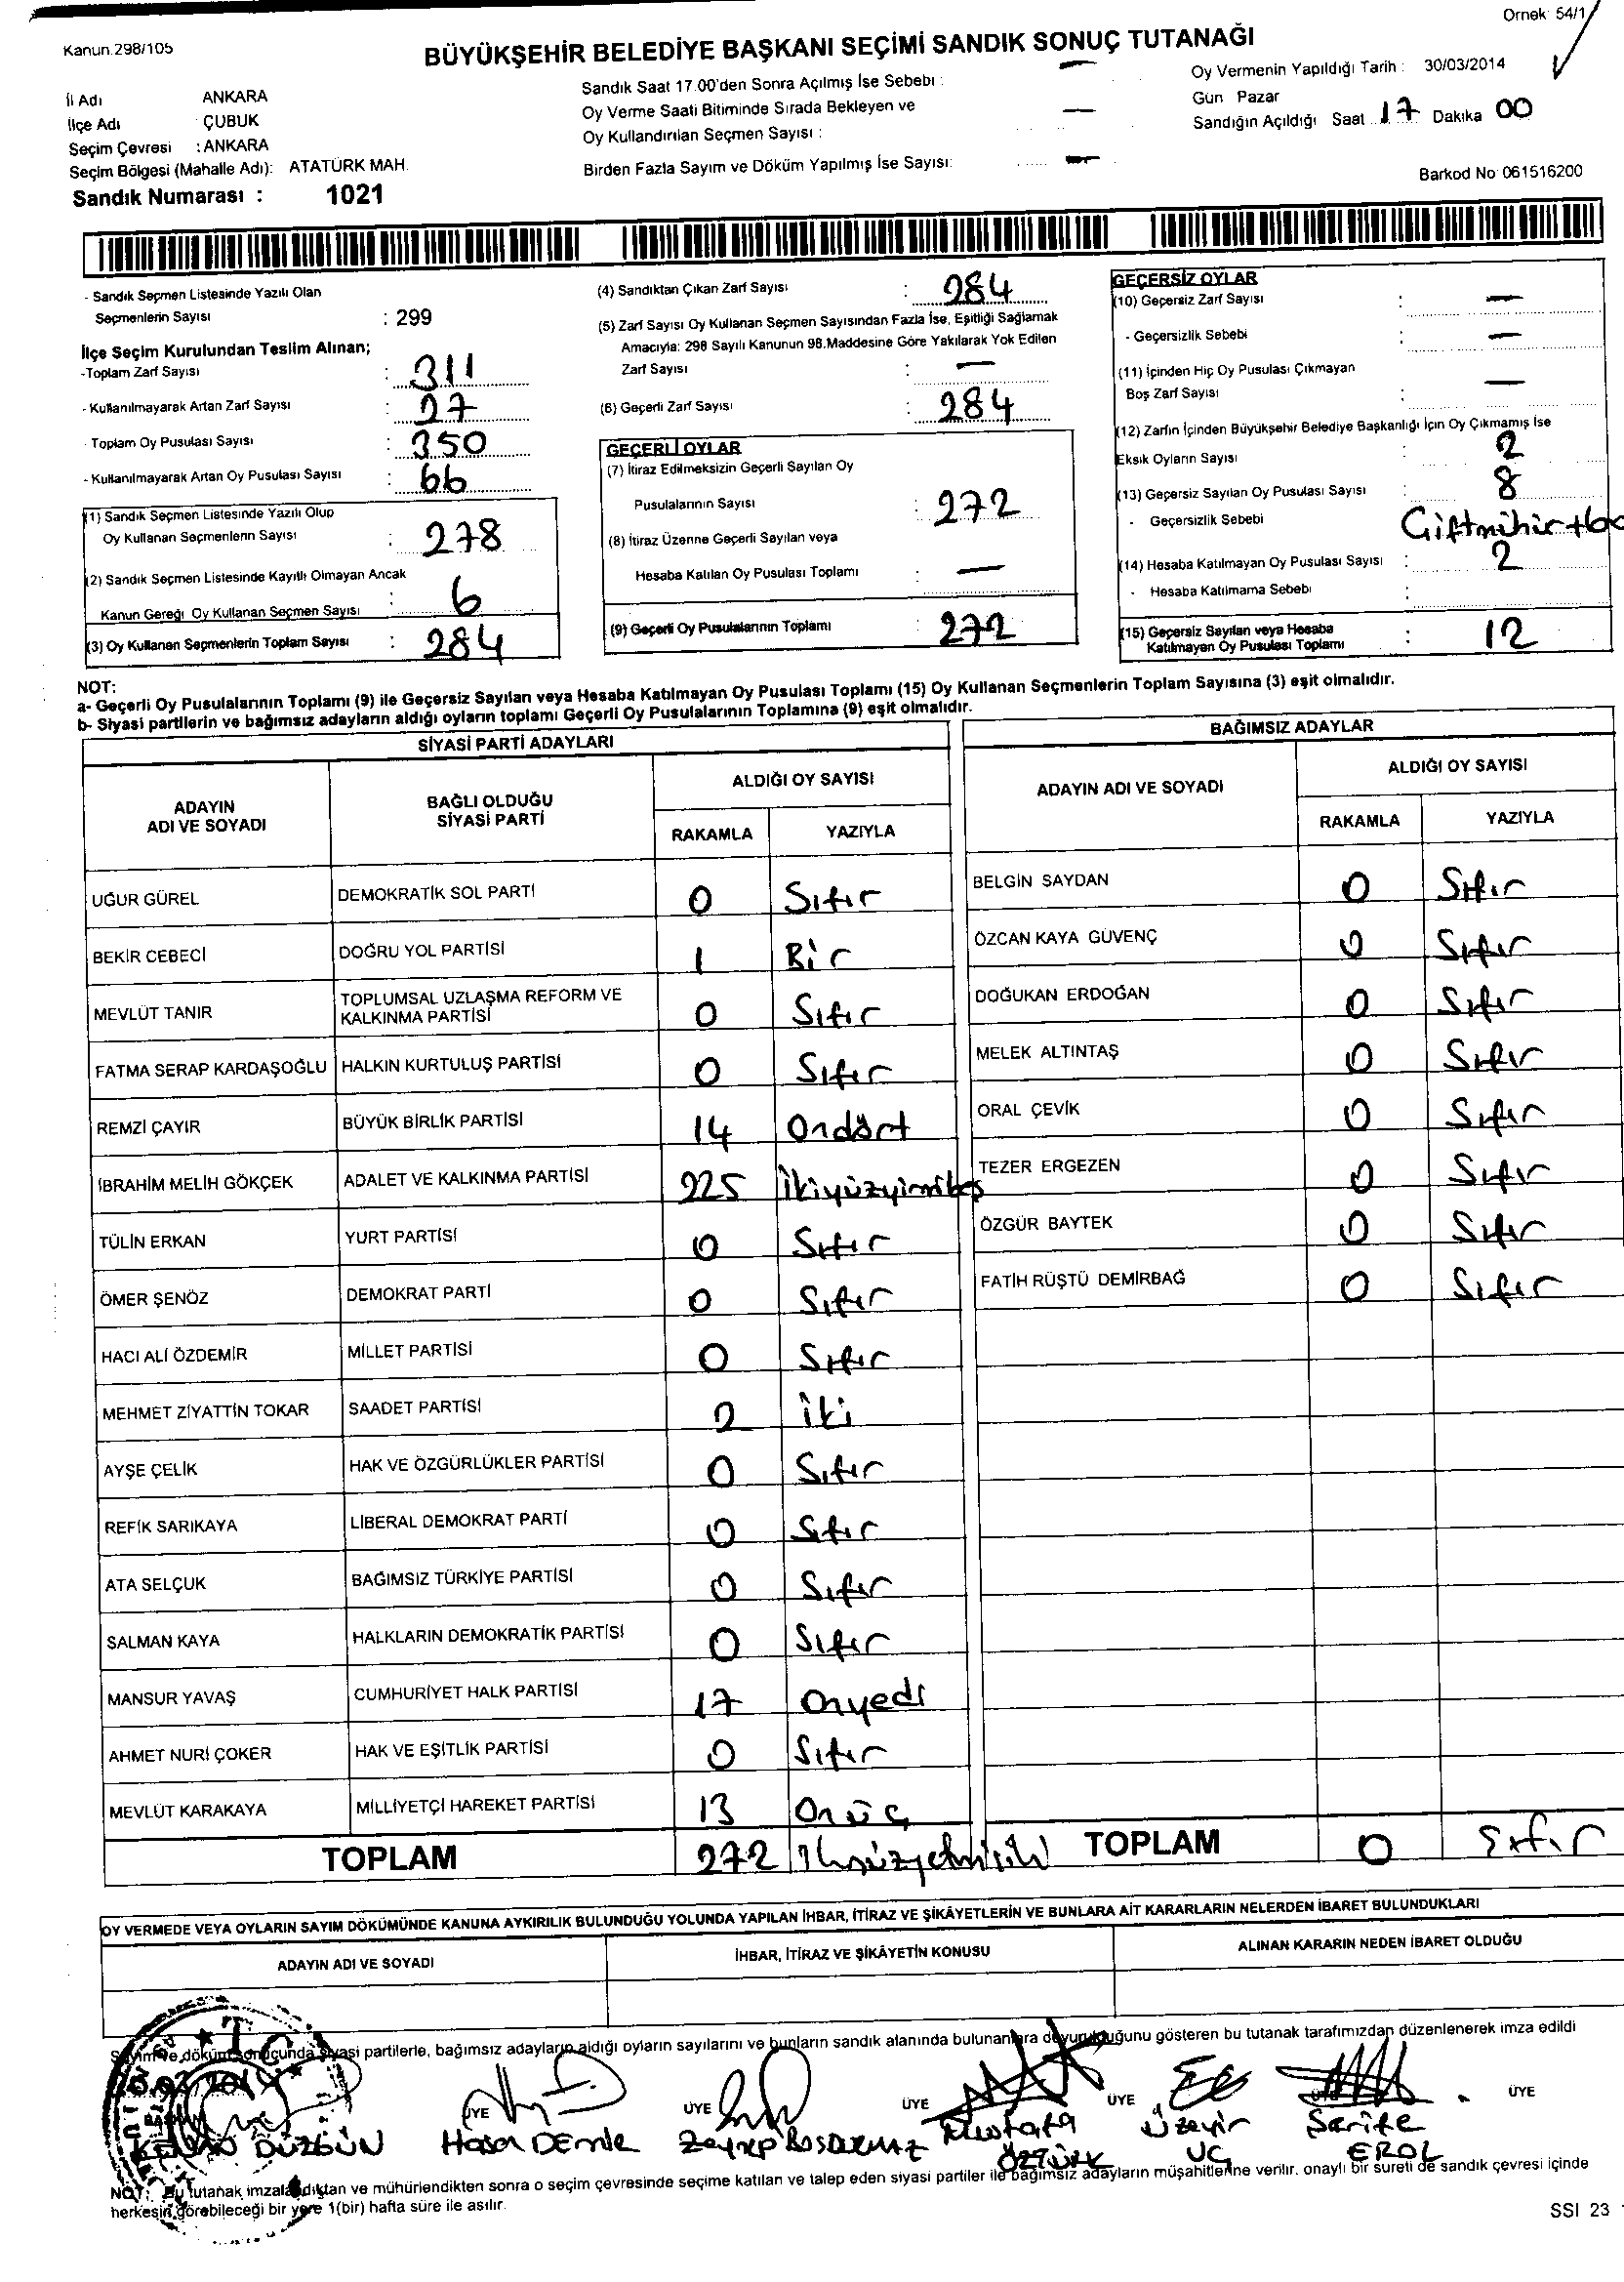 Örnek: 54/1
Kanun.298/105
BÜYÜKŞEHİR BELEDİYE BAŞKANI SEÇİMİ SANDIK SONUÇ TUTANAĞI
İl Adı ANKARA
İlçe Adı : ÇUBUK
Seçim Çevresi : ANKARA
Seçim Bölgesi (Mahalle Adı): ATATÜRK MAH.
Sandık Numarası : 1021
Sandık Saat 17.00'den Sonra Açılmış İse Sebebi : —
Oy Verme Saati Bitiminde Sırada Bekleyen ve
Oy Kullandırılan Seçmen Sayısı : —
Birden Fazla Sayım ve Döküm Yapılmış İse Sayısı: —
Oy Vermenin Yapıldığı Tarih : 30/03/2014
Gün Pazar
Sandığın Açıldığı Saat 17 Dakika 00
Barkod No 061516200
- Sandık Seçmen Listesinde Yazılı Olan
Seçmenlerin Sayısı : 299
İlçe Seçim Kurulundan Teslim Alınan;
-Toplam Zarf Sayısı : 311
- Kullanılmayarak Artan Zarf Sayısı : 27
- Toplam Oy Pusulası Sayısı : 350
- Kullanılmayarak Artan Oy Pusulası Sayısı : 66
(1) Sandık Seçmen Listesinde Yazılı Olup
Oy Kullanan Seçmenlerin Sayısı : 278
(2) Sandık Seçmen Listesinde Kayıtlı Olmayan Ancak
Kanun Gereği Oy Kullanan Seçmen Sayısı : 6
(3) Oy Kullanan Seçmenlerin Toplam Sayısı : 284
(4) Sandıktan Çıkan Zarf Sayısı : 284
(5) Zarf Sayısı Oy Kullanan Seçmen Sayısından Fazla İse, Eşitliği Sağlamak
Amacıyla: 298 Sayılı Kanunun 98.Maddesine Göre Yakılarak Yok Edilen
Zarf Sayısı : —
(6) Geçerli Zarf Sayısı : 284
GEÇERLİ OYLAR
(7) İtiraz Edilmeksizin Geçerli Sayılan Oy
Pusulalarının Sayısı : 272
(8) İtiraz Üzerine Geçerli Sayılan veya
Hesaba Katılan Oy Pusulası Toplamı : —
(9) Geçerli Oy Pusulalarının Toplamı : 272
GEÇERSİZ OYLAR
(10) Geçersiz Zarf Sayısı : —
- Geçersizlik Sebebi : —
(11) İçinden Hiç Oy Pusulası Çıkmayan
Boş Zarf Sayısı : —
(12) Zarfın İçinden Büyükşehir Belediye Başkanlığı İçin Oy Çıkmamış İse
Eksik Oyların Sayısı : 2
(13) Geçersiz Sayılan Oy Pusulası Sayısı : 8
- Geçersizlik Sebebi
(14) Hesaba Katılmayan Oy Pusulası Sayısı : 2
- Hesaba Katılmama Sebebi :
(15) Geçersiz Sayılan veya Hesaba
Katılmayan Oy Pusulası Toplamı : 12
NOT:
a- Geçerli Oy Pusulalarının Toplamı (9) ile Geçersiz Sayılan veya Hesaba Katılmayan Oy Pusulası Toplamı (15) Oy Kullanan Seçmenlerin Toplam Sayısına (3) eşit olmalıdır.
b- Siyasi partilerin ve bağımsız adayların aldığı oyların toplamı Geçerli Oy Pusulalarının Toplamına (9) eşit olmalıdır.
SİYASİ PARTİ ADAYLARI
ADAYIN ADI VE SOYADI BAĞLI OLDUĞU SİYASİ PARTİ ALDIĞI OY SAYISI
RAKAMLA YAZIYLA
UĞUR GÜREL DEMOKRATİK SOL PARTİ 0 Sıfır
BEKİR CEBECİ DOĞRU YOL PARTİSİ 1 Bir
MEVLÜT TANIR TOPLUMSAL UZLAŞMA REFORM VE KALKINMA PARTİSİ 0 Sıfır
FATMA SERAP KARDAŞOĞLU HALKIN KURTULUŞ PARTİSİ 0 Sıfır
REMZİ ÇAYIR BÜYÜK BİRLİK PARTİSİ 14 Ondört
İBRAHİM MELİH GÖKÇEK ADALET VE KALKINMA PARTİSİ 225 İkiyüzyirmibeş
TÜLİN ERKAN YURT PARTİSİ 0 Sıfır
ÖMER ŞENÖZ DEMOKRAT PARTİ 0 Sıfır
HACI ALİ ÖZDEMİR MİLLET PARTİSİ 0 Sıfır
MEHMET ZİYATTİN TOKAR SAADET PARTİSİ 2 İki
AYŞE ÇELİK HAK VE ÖZGÜRLÜKLER PARTİSİ 0 Sıfır
REFİK SARIKAYA LİBERAL DEMOKRAT PARTİ 0 Sıfır
ATA SELÇUK BAĞIMSIZ TÜRKİYE PARTİSİ 0 Sıfır
SALMAN KAYA HALKLARIN DEMOKRATİK PARTİSİ 0 Sıfır
MANSUR YAVAŞ CUMHURİYET HALK PARTİSİ 17 Onyedi
AHMET NURİ ÇOKER HAK VE EŞİTLİK PARTİSİ 0 Sıfır
MEVLÜT KARAKAYA MİLLİYETÇİ HAREKET PARTİSİ 13 Onüç
TOPLAM 272
BAĞIMSIZ ADAYLAR
ADAYIN ADI VE SOYADI ALDIĞI OY SAYISI
RAKAMLA YAZIYLA
BELGİN SAYDAN 0 Sıfır
ÖZCAN KAYA GÜVENÇ 0 Sıfır
DOĞUKAN ERDOĞAN 0 Sıfır
MELEK ALTINTAŞ 0 Sıfır
ORAL ÇEVİK 0 Sıfır
TEZER ERGEZEN 0 Sıfır
ÖZGÜR BAYTEK 0 Sıfır
FATİH RÜŞTÜ DEMİRBAĞ 0 Sıfır
TOPLAM 0 Sıfır
OY VERMEDE VEYA OYLARIN SAYIM DÖKÜMÜNDE KANUNA AYKIRILIK BULUNDUĞU YOLUNDA YAPILAN İHBAR, İTİRAZ VE ŞİKÂYETLERİN VE BUNLARA AİT KARARLARIN NELERDEN İBARET BULUNDUKLARI
ADAYIN ADI VE SOYADI İHBAR, İTİRAZ VE ŞİKÂYETİN KONUSU ALINAN KARARIN NEDEN İBARET OLDUĞU
Sayım ve döküm sonucunda siyasi partilerle, bağımsız adayların aldığı oyların sayılarını ve bunların sandık alanında bulunanlara duyurulduğunu gösteren bu tutanak tarafımızdan düzenlenerek imza edildi
ÜYE ÜYE ÜYE ÜYE ÜYE ÜYE
DÜZGÜN Hasan Zeynep Mustafa ÖZTÜRK Üzeyir UÇ Şerife EROL
NOT: Bu tutanak imzalandıktan ve mühürlendikten sonra o seçim çevresinde seçime katılan ve talep eden siyasi partiler ile bağımsız adayların müşahitlerine verilir. onaylı bir sureti de sandık çevresi içinde
herkesin görebileceği bir yere 1(bir) hafta süre ile asılır.
SSI 23